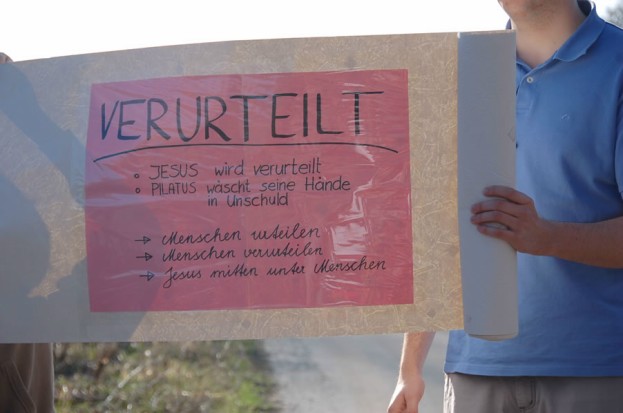 VERURTEILT
○ JESUS wird verurteilt
○ PILATUS wäscht seine Hände
in Unschuld
→ Menschen urteilen
→ Menschen verurteilen
→ Jesus mitten unter Menschen